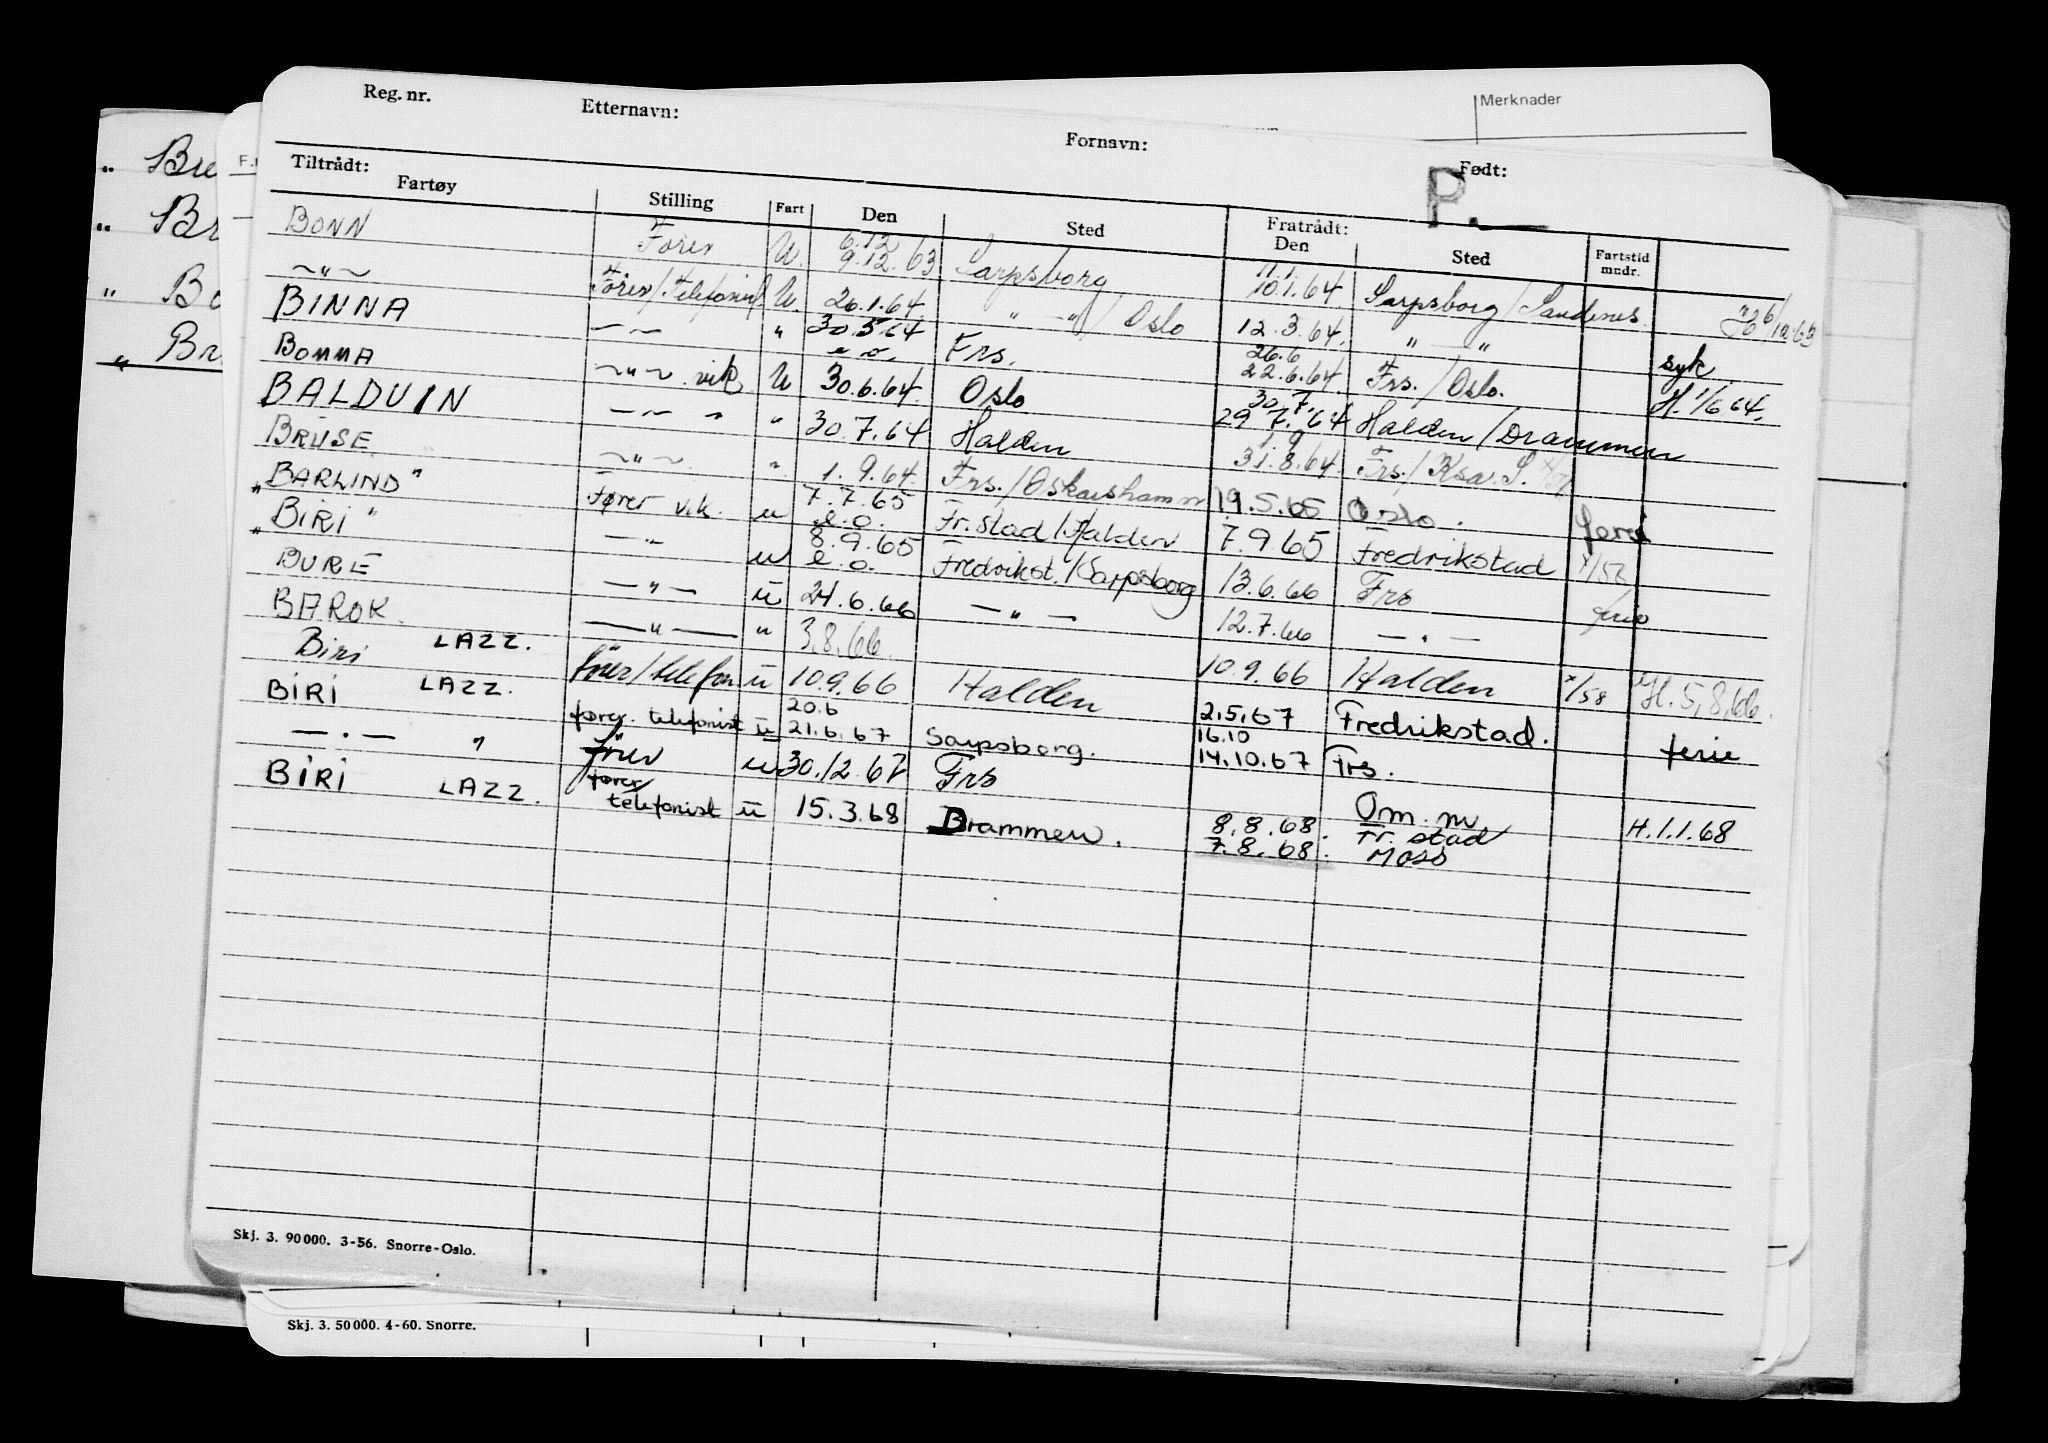 Merknader
Reg. nr. Etternavn: Fornavn: Født:
P.
Tiltrådt: Fratrådt:
Fartøy Stilling Fart Den Sted Den Sted Fartstid mndr.
BONN Fører U. 6.12 9.12.63 Sarpsborg 11.1. 10.1.64 Sarpsborg/Sandenes 26/12.63
~ " ~ Fører/Telefonist U. 20.1.64 " - " / Oslo 12.3.64. " "
BINNA — — " 30.5.64 e.o. Frs. 26.6 22.6.64. Frs./Oslo. syk H. 1/6 64.
BOMMA ~ " ~ vik. U 30.6.64. Oslo 30.7. 29 7.64 Halden/Drammen
BALDUIN — — " " 30.7.64 Halden 1.9 31.8.64. Frs./Ksa. S.
BRUSE. ~ " ~ " 1.9.64. Frs./Oskarshamn 19.5.65 Oslo. ferie
" BARLIND " Fører vik. u 7.7.65 e.o. Fr.stad/Halden 7.9.65 Fredrikstad
" BIRI " — " u 8.9.65 e.o. Fredrikst./Sarpsborg 13.6.66 Frs ferie
BURE — " — u 24.6.66 — " — 12.7.66 — " —
BAROK. — " — " 3.8.66. 10.9.66 Halden x/58 H. 5,8,66.
Biri LAZZ. fører/telefon u 10.9.66 Halden 2.5.67 Fredrikstad. ferie
BIRI LAZZ. fører. telefonist u 20.6 21.6.67 Sarpsborg. 16.10 14.10.67 Frs.
— . — " fører u 30.12.67 Frs Om. nv H.1.1.68
BIRI LAZZ. fører telefonist u 15.3.68 Drammen. 8.8.68. 7.8.68. Fr. stad Moss
Skj. 3. 90000. 3-56. Snorre-Oslo.
Skj. 3. 50000. 4-60. Snorre.